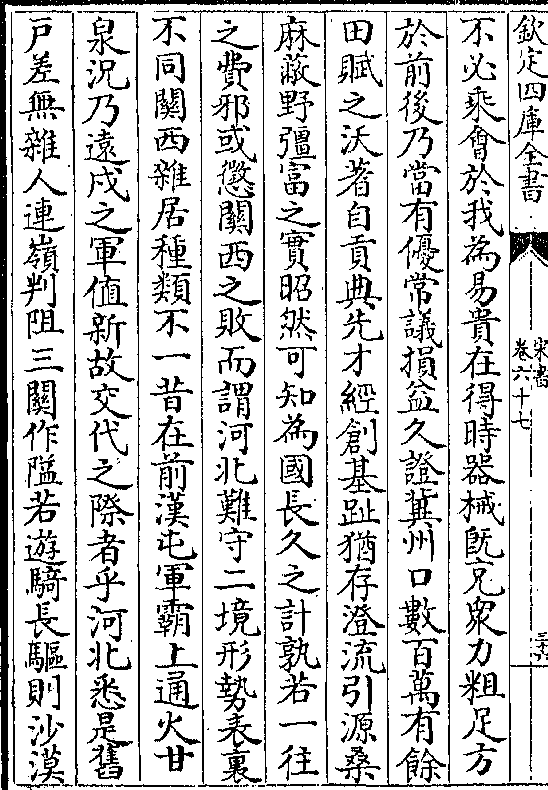 欽定四庫全書
宋書
卷六十七
不必乘㑹於我為易貴在得時器械既充衆力粗足方
於前後乃當有優常議損益久證冀州口數百萬有餘
田賦之沃著自貢典先才經創基趾猶存澄流引源桑
麻蔽野彊富之實昭然可知為國長久之計孰若一往
之費邪或懲關西之敗而謂河北難守二境形勢表裏
不同關西雜居種類不一昔在前漢屯軍霸上通火甘
泉況乃遠戍之軍值新故交代之際者乎河北悉是舊
戸差無雜人連嶺判阻三關作隘若遊騎長驅則沙漠